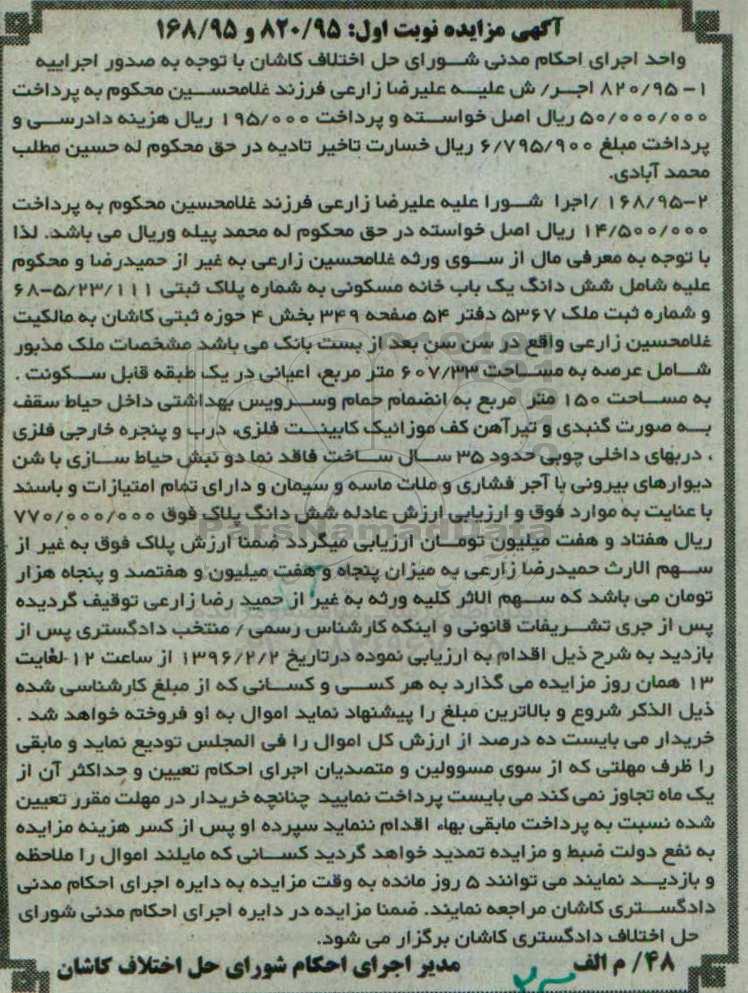 آگهی مزایده نوبت اول: ۸۲۰/۹۵ و ۱۶۸/۹۵
واحد اجرای احکام مدنی شورای حل اختلاف کاشان با توجه به صدور اجراییه
۱- ۸۲۰/۹۵ اجر/ ش علیه علیرضا زارعی فرزند غلامحسین محکوم به پرداخت
۵۰/۰۰۰/۰۰۰ ریال اصل خواسته و پرداخت ۱۹۵/۰۰۰ ریال هزینه دادرسی و
پرداخت مبلغ ۶/۷۹۵/۹۰۰ ریال خسارت تاخیر تادیه در حق محکوم له حسین مطلب
محمد آبادی.
۲-۱۶۸/۹۵ /اجرا شورا علیه علیرضا زارعی فرزند غلامحسین محکوم به پرداخت
۱۴/۵۰۰/۰۰۰ ریال اصل خواسته در حق محکوم له محمد پیله وریال می باشد. لذا
با توجه به معرفی مال از سوی ورثه غلامحسین زارعی به غیر از حمیدرضا و محکوم
علیه شامل شش دانگ یک باب خانه مسکونی به شماره پلاک ثبتی ۵/۲۳/۱۱۱-۶۸
و شماره ثبت ملک ۵۳۶۷ دفتر ۵۴ صفحه ۳۴۹ بخش ۴ حوزه ثبتی کاشان به مالکیت
غلامحسین زارعی واقع در سن سن بعد از بست بانک می باشد مشخصات ملک مذبور
شامل عرصه به مساحت ۶۰۷/۳۳ متر مربع، اعیانی در یک طبقه قابل سکونت .
به مساحت ۱۵۰ متر مربع به انضمام حمام وسرویس بهداشتی داخل حیاط سقف
به صورت گنبدی و تیرآهن کف موزائیک کابینت فلزی، درب و پنجره خارجی فلزی
، دربهای داخلی چوبی حدود ۳۵ سال ساخت فاقد نما دو نبش حیاط سازی با شن
دیوارهای بیرونی با آجر فشاری و ملات ماسه و سیمان و دارای تمام امتیازات و باسند
با عنایت به موارد فوق و ارزیابی ارزش عادله شش دانگ پلاک فوق ۷۷۰/۰۰۰/۰۰۰
ریال هفتاد و هفت میلیون تومان ارزیابی میگردد ضمنا ارزش پلاک فوق به غیر از
سهم الارث حمیدرضا زارعی به میزان پنجاه و هفت میلیون و هفتصد و پنجاه هزار
تومان می باشد که سهم الاثر کلیه ورثه به غیر از حمید رضا زارعی توقیف گردیده
پس از جری تشریفات قانونی و اینکه کارشناس رسمی / منتخب دادگستری پس از
بازدید به شرح ذیل اقدام به ارزیابی نموده درتاریخ ۱۳۹۶/۲/۲ از ساعت ۱۲ لغایت
۱۳ همان روز مزایده می گذارد به هر کسی و کسانی که از مبلغ کارشناسی شده
ذیل الذکر شروع و بالاترین مبلغ را پیشنهاد نماید اموال به او فروخته خواهد شد .
خریدار می بایست ده درصد از ارزش کل اموال را فی المجلس تودیع نماید و مابقی
را ظرف مهلتی که از سوی مسوولین و متصدیان اجرای احکام تعیین و حداکثر آن از
یک ماه تجاوز نمی کند می بایست پرداخت نمایید چنانچه خریدار در مهلت مقرر تعیین
شده نسبت به پرداخت مابقی بهاء اقدام ننماید سپرده او پس از کسر هزینه مزایده
به نفع دولت ضبط و مزایده تمدید خواهد گردید کسانی که مایلند اموال را ملاحظه
و بازدید نمایند می توانند ۵ روز مانده به وقت مزایده به دایره اجرای احکام مدنی
دادگستری کاشان مراجعه نمایند. ضمنا مزایده در دایره اجرای احکام مدنی شورای
حل اختلاف دادگستری کاشان برگزار می شود.
۴۸/ م الف مدیر اجرای احکام شورای حل اختلاف کاشان